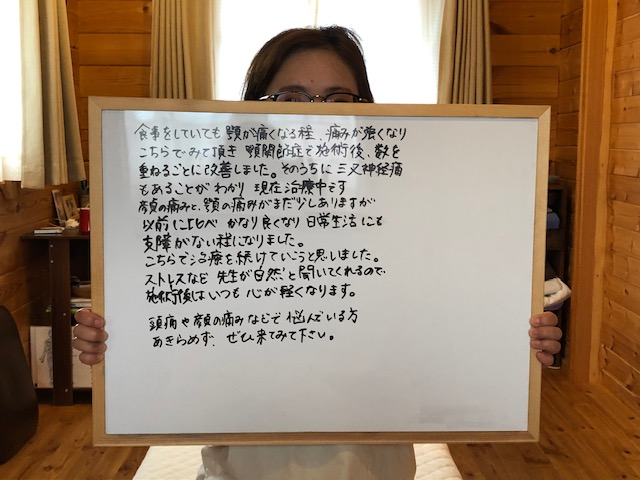 食事をしていても顎が痛くなる程、痛みが強くなり
こちらでみて頂き 顎関節症で施術後、数を
重ねるごとに改善しました。そのうちに三叉神経痛
もあることがわかり 現在治療中です
顔の痛みと、顎の痛みがまだ少しありますが
以前に比べ かなり良くなり 日常生活にも
支障がない程になりました。
こちらで治療を続けていこうと思いました。
ストレスなど 先生が自然と聞いてくれるので
施術後はいつも 心が軽くなります。
頭痛や顔の痛みなどで 悩んでいる方
あきらめず、ぜひ来てみて下さい。